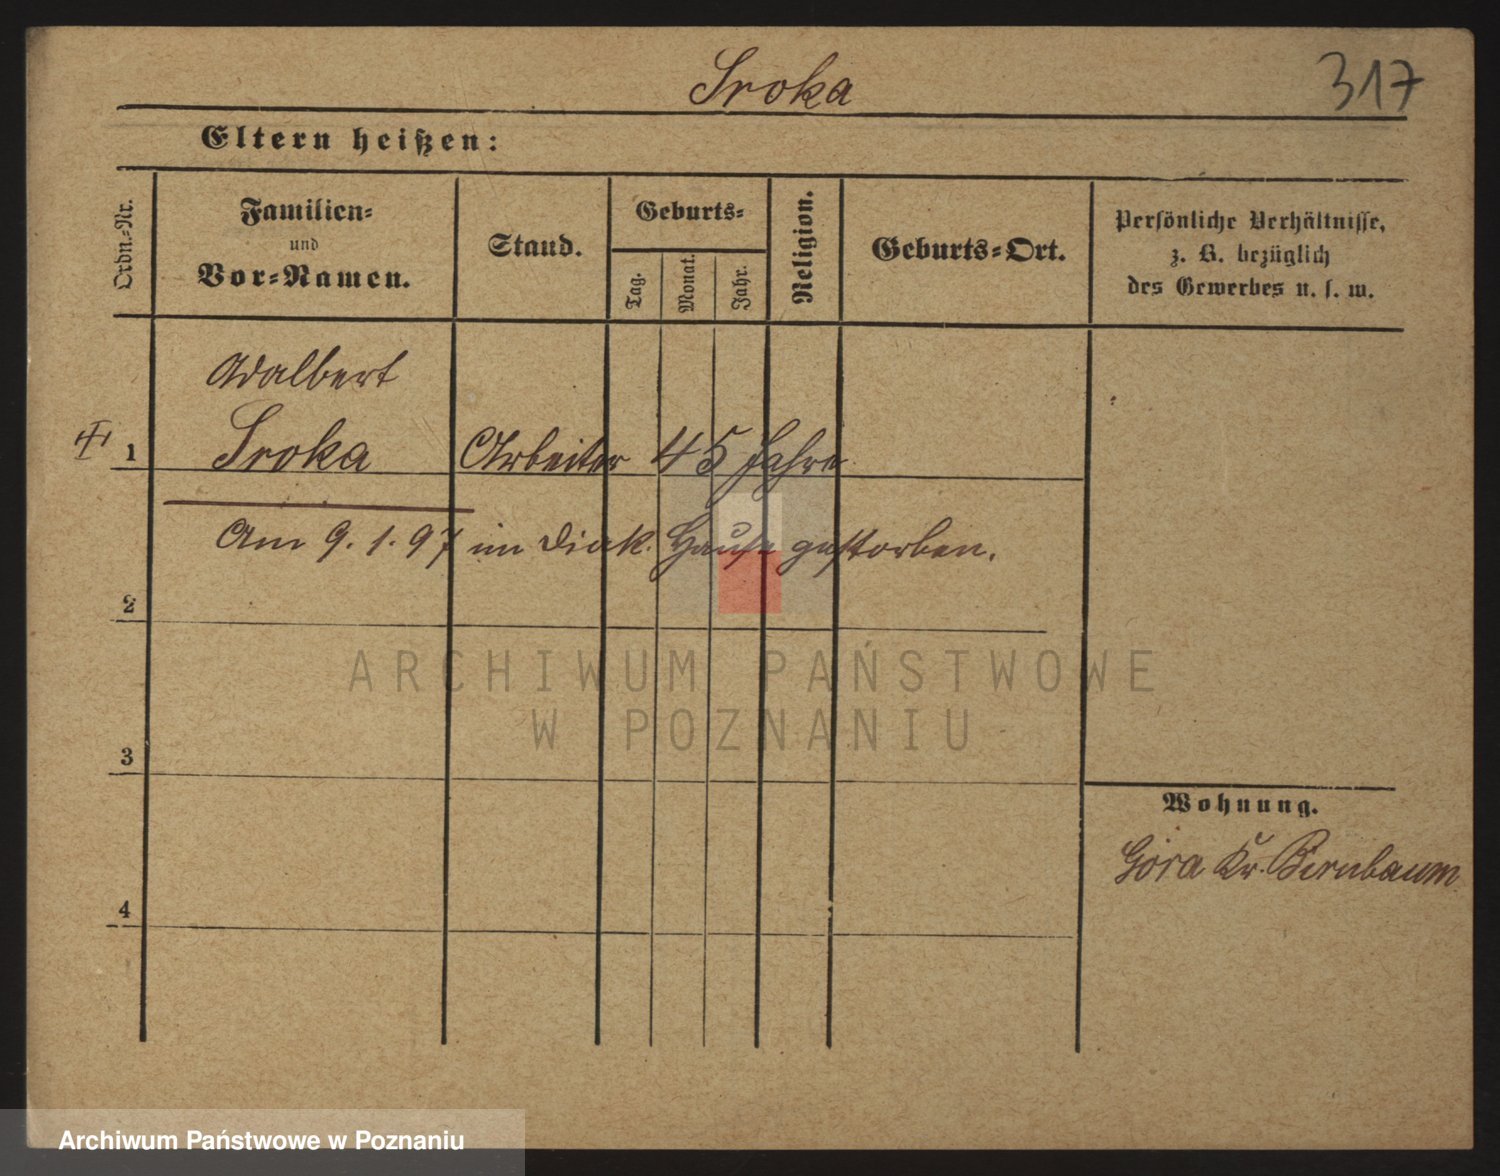 Sroka
317
Eltern heißen:
Ordn.-Nr.
Familien-
und
Vor-Namen.
Stand.
Geburts-
Tag.
Monat.
Jahr.
Religion.
Geburts-Ort.
Persönliche Verhältnisse,
z. B. bezüglich
des Gewerbes u. s. w.
Adalbert
1 Sroka Arbeiter 45 Jahre
Am 9. 1. 97 im Diak. Hause gestorben.
2
ARCHIWUM PAŃSTWOWE
W POZNANIU
3
Wohnung.
Góra Kr. Birnbaum
4
Archiwum Państwowe w Poznaniu